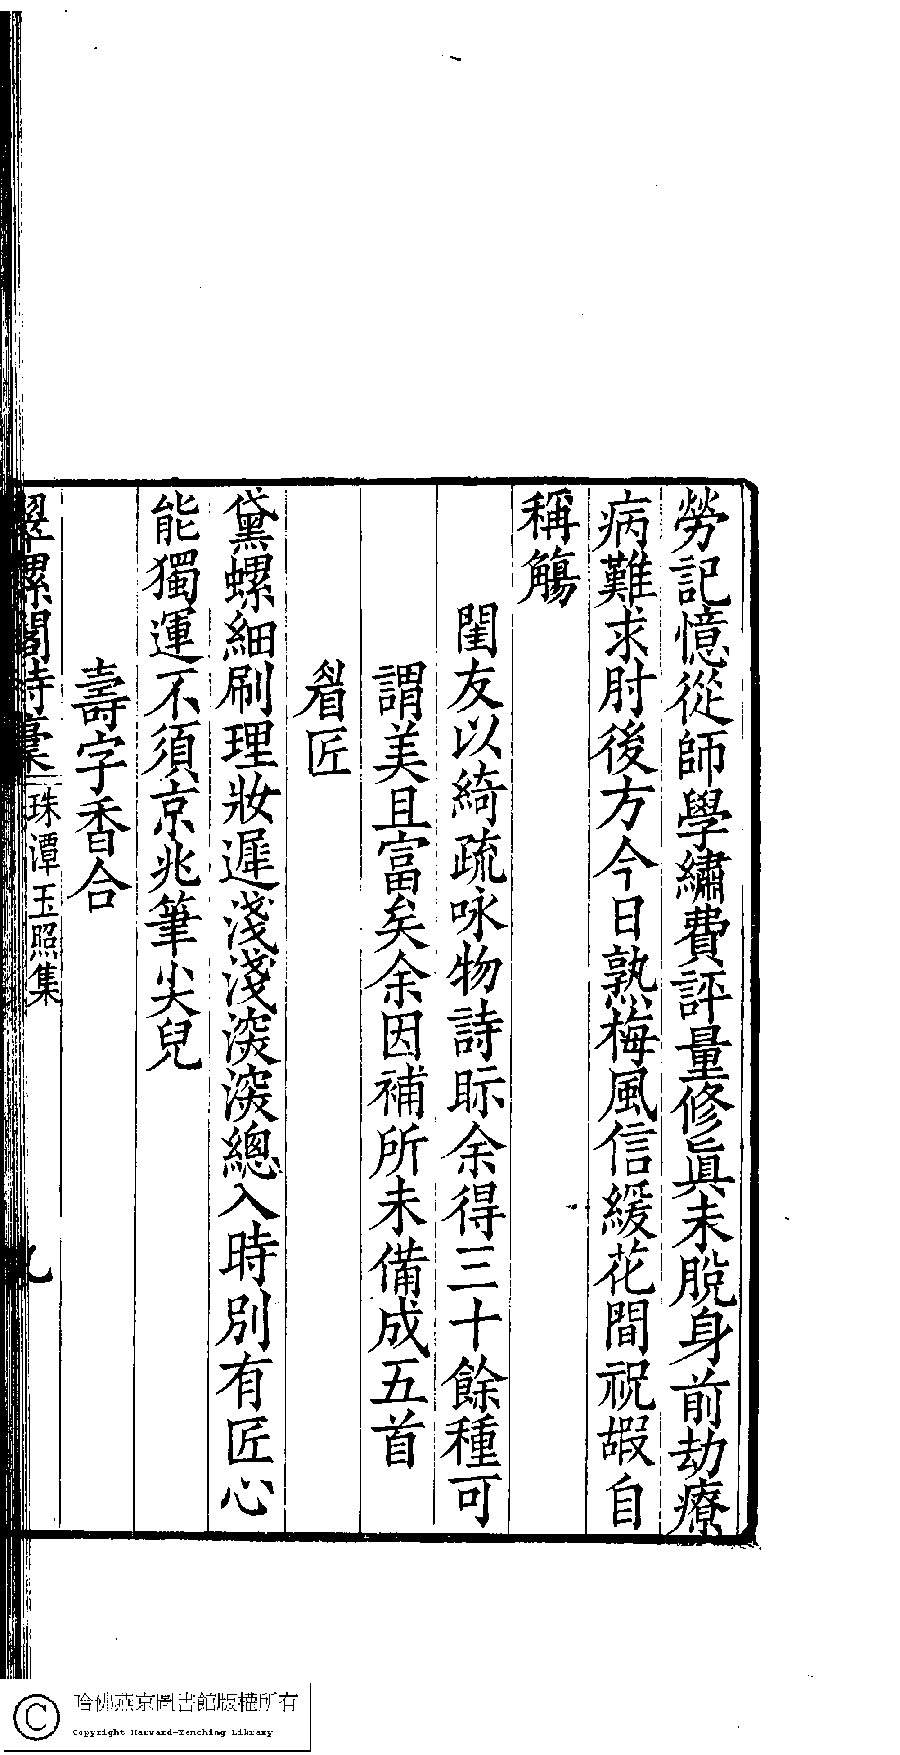 勞記憶從師學繡費評量修眞未脫身前劫療
病難求肘後方今日熟梅風信緩花間祝嘏自
稱觴
閨友以綺疏咏物詩眎余得三十餘種可
謂美且富矣余因補所未備成五首
眉匠
黛螺細刷理妝遲淺淺深深總入時別有匠心
能獨運不須京兆筆尖兒
壽字香合
翠螺閣詩稾 珠潭玉照集 九
哈佛燕京圖書館版權所有
Copyright Harvard-Yenching Library